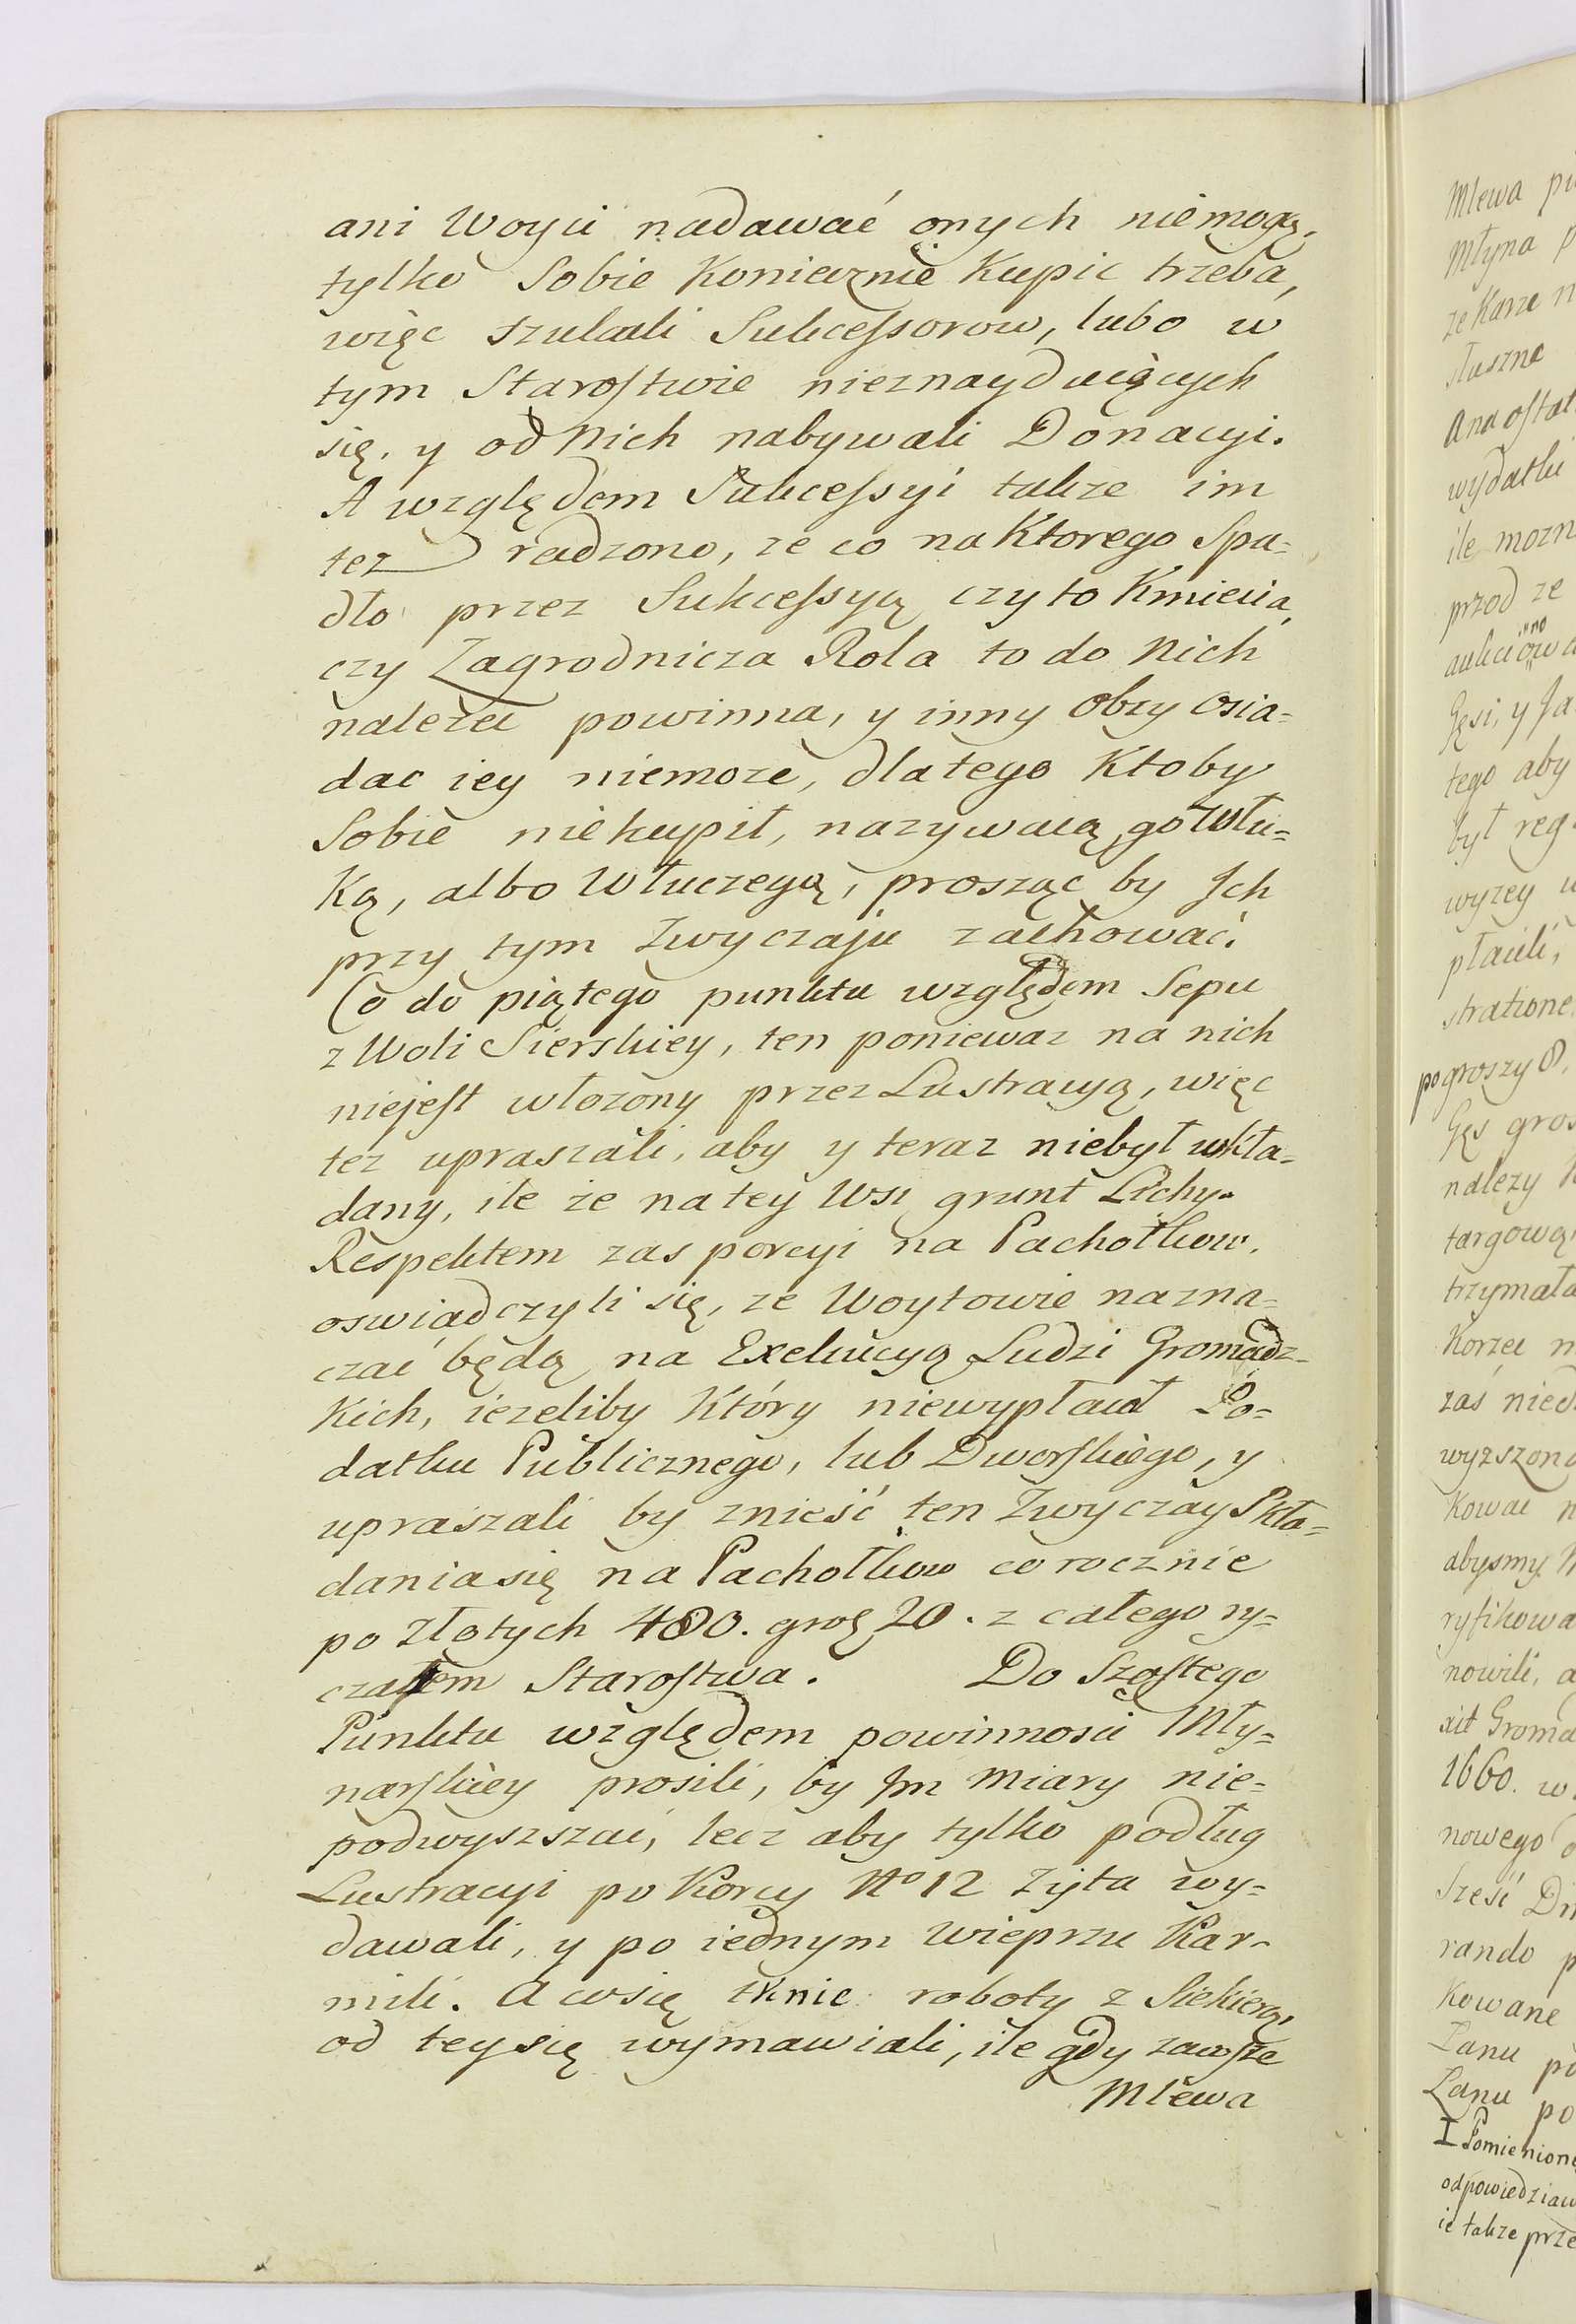 ani Woyci nadawać onych niemogą,
tylko Sobie Koniecznie Kupic trzeba,
więc szukali Sukceſsorow, lubo w
tym Staroſtwie nieznayduiących
się, y od Nich nabywali Donacyi.
A względem Sukceſsyi takze im
tez radzono, ze co na Ktorego Spa=
dło przez Sukceſsyą czy to Kmiecia,
czy Zagrodnicza Rola to do Nich
nalezec powinna, y inny obzy osia=
dac iey niemoze, dlatego Ktoby
Sobie niekupił, nazywaią go Tułu=
Ką, albo Włuczegą, prosząc by Ich
przy tym Zwyczaju zachować.
Co do piątego punktu względem Sepu
z Woli Sierskiey, ten poniewaz na nich
niejeſt włozony przez Lustracyą, więc
tez upraszali, aby y teraz niebył wkła=
dany, ile że na tey Wsi grunt Lichy.
Respektem zas porcyi na Pachołkow,
oswiadczyli się, ze Woytowie nazna=
czać będą na Exekucyą Ludzi Gromadz=
Kich, iezeliby Który niewypłacił Po=
datku Publicznego, lub Dworſkiego, y
upraszali by znieść ten Zwyczay Skła=
dania się na Pachołkow co rocznie
po Złotych 480. grosz 20. z całego ry=
czałtem Staroſtwa. Do Szoſtego
Punktu względem powinnosci Mły=
narſkiey prosili, by Im Miary nie=
podwyszszać, lecz aby tylko podług
Lustracyi po Korcy No 12 Zyta wy=
dawali, y po iednym Wieprzu Kar=
mili. A co się tknie roboty z Siekierą,
od tey się wymawiali, ile gdy zawſze
Mlewa
Mlewa
Młyna
ze Karze
słuszne
A na oſtat
wydatki
ile mozn
przod ze
Gęsi, y Ja
tego aby
był reg
wyzey
płacili,
stratione
po groszy 8,
Gęs gros
nalezy
targową
trzymała
Korzec
zaś nied
wyzszono
Kowac
abysmy
ryfikowa
nowili, a
xit Groma
1660. w
nowego
Sześć
rando
Kowane
Łanu po
Łanu po
I Pomienione
odpowiedziaw
ie takze prze